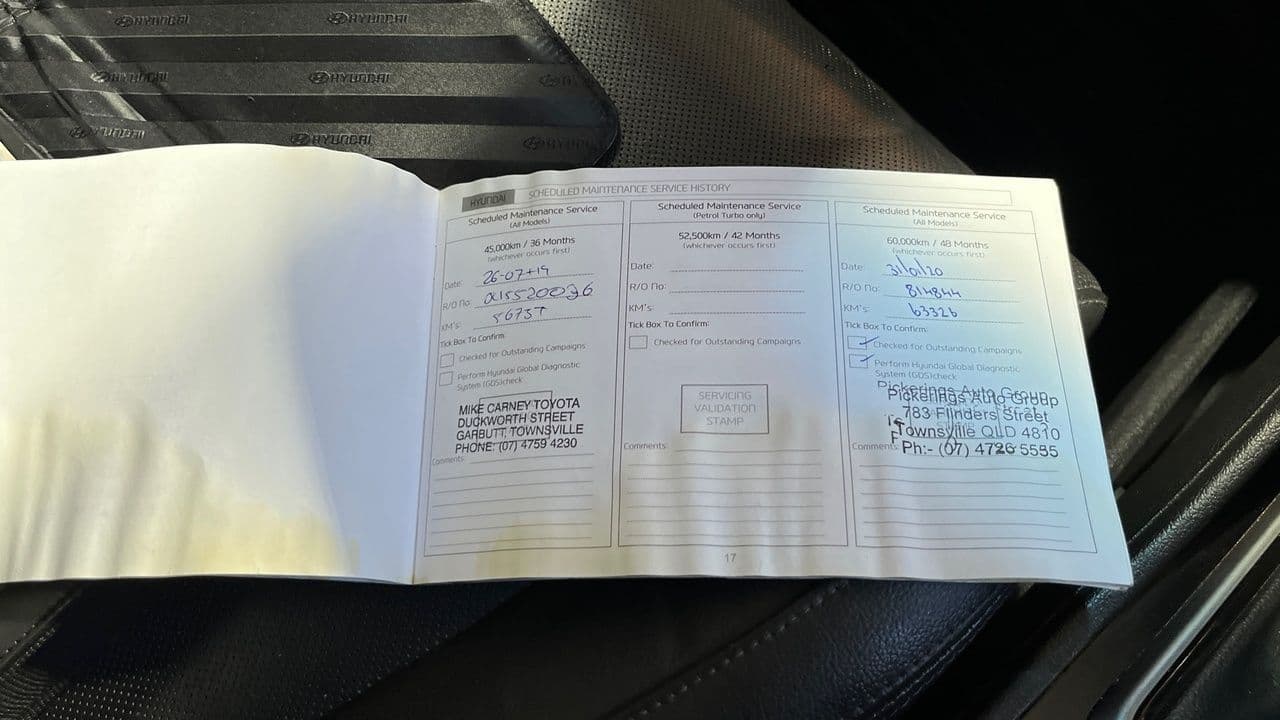 HYUNDAI HYUNDAI
HYUNDAI HYUNDAI
HYUNDAI HYUNDAI HYUNDAI
HYUNDAI SCHEDULED MAINTENANCE SERVICE HISTORY
Scheduled Maintenance Service
(All Models)
45,000km / 36 Months
(whichever occurs first)
Date: 26-07-19
R/O No: 0015520036
KM's:
Tick Box To Confirm:
Checked for Outstanding Campaigns
Perform Hyundai Global Diagnostic
System (GDS)check
MIKE CARNEY TOYOTA
DUCKWORTH STREET
GARBUTT, TOWNSVILLE
PHONE: (07) 4759 4230
Comments:
Scheduled Maintenance Service
(Petrol Turbo only)
52,500km / 42 Months
(whichever occurs first)
Date:
R/O No:
KM's:
Tick Box To Confirm:
Checked for Outstanding Campaigns
SERVICING
VALIDATION
STAMP
Comments:
Scheduled Maintenance Service
(All Models)
60,000km / 48 Months
(whichever occurs first)
Date: 31/01/20
R/O No: 814844
KM's: 63326
Tick Box To Confirm:
Checked for Outstanding Campaigns
Perform Hyundai Global Diagnostic
System (GDS)check
Pickerings Auto Group
Pickerings Auto Group
783 Flinders Street
Townsville QLD 4810
Comments: Ph:- (07) 4726 5555
17